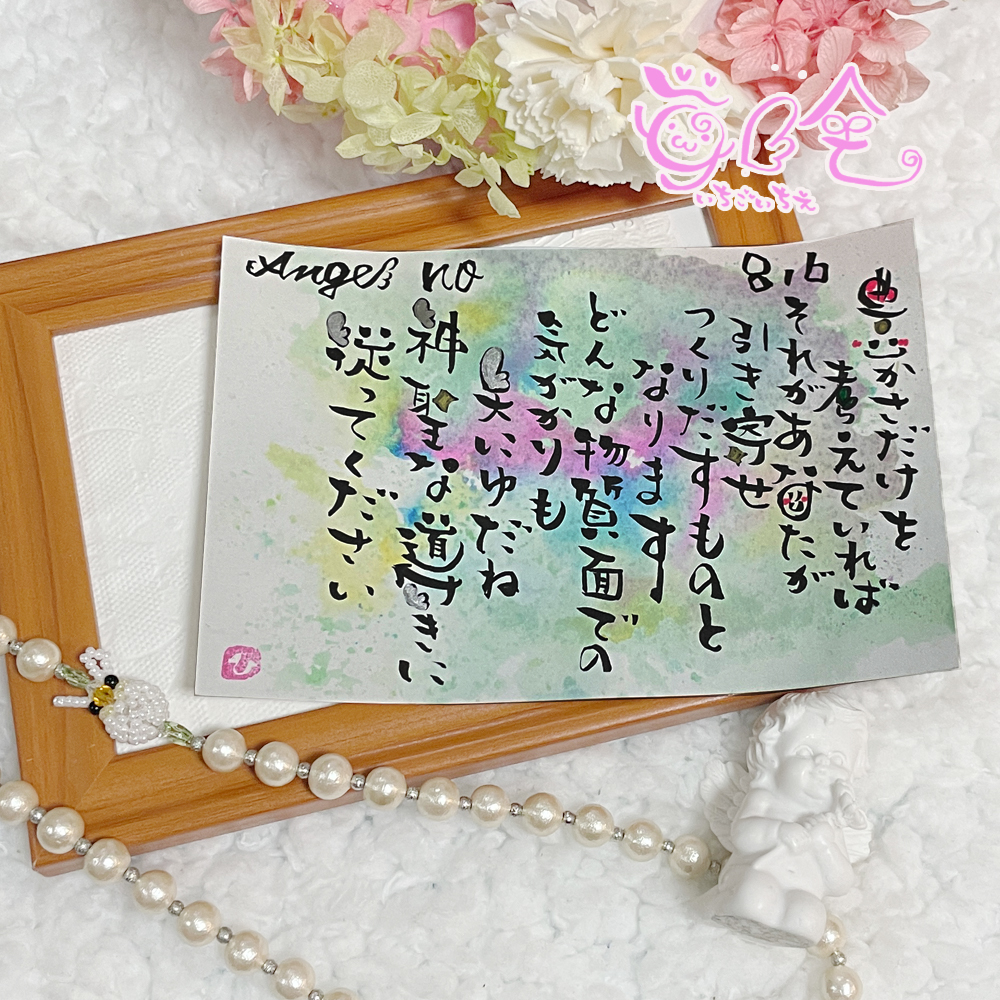 Angel no 816
豊かさだけを
考えていれば
それがあなたが
引き寄せ
つくりだすものと
なります
どんな物質面での
気がかりも
天にゆだね
神聖な導きに
従ってください
いちごいちえ